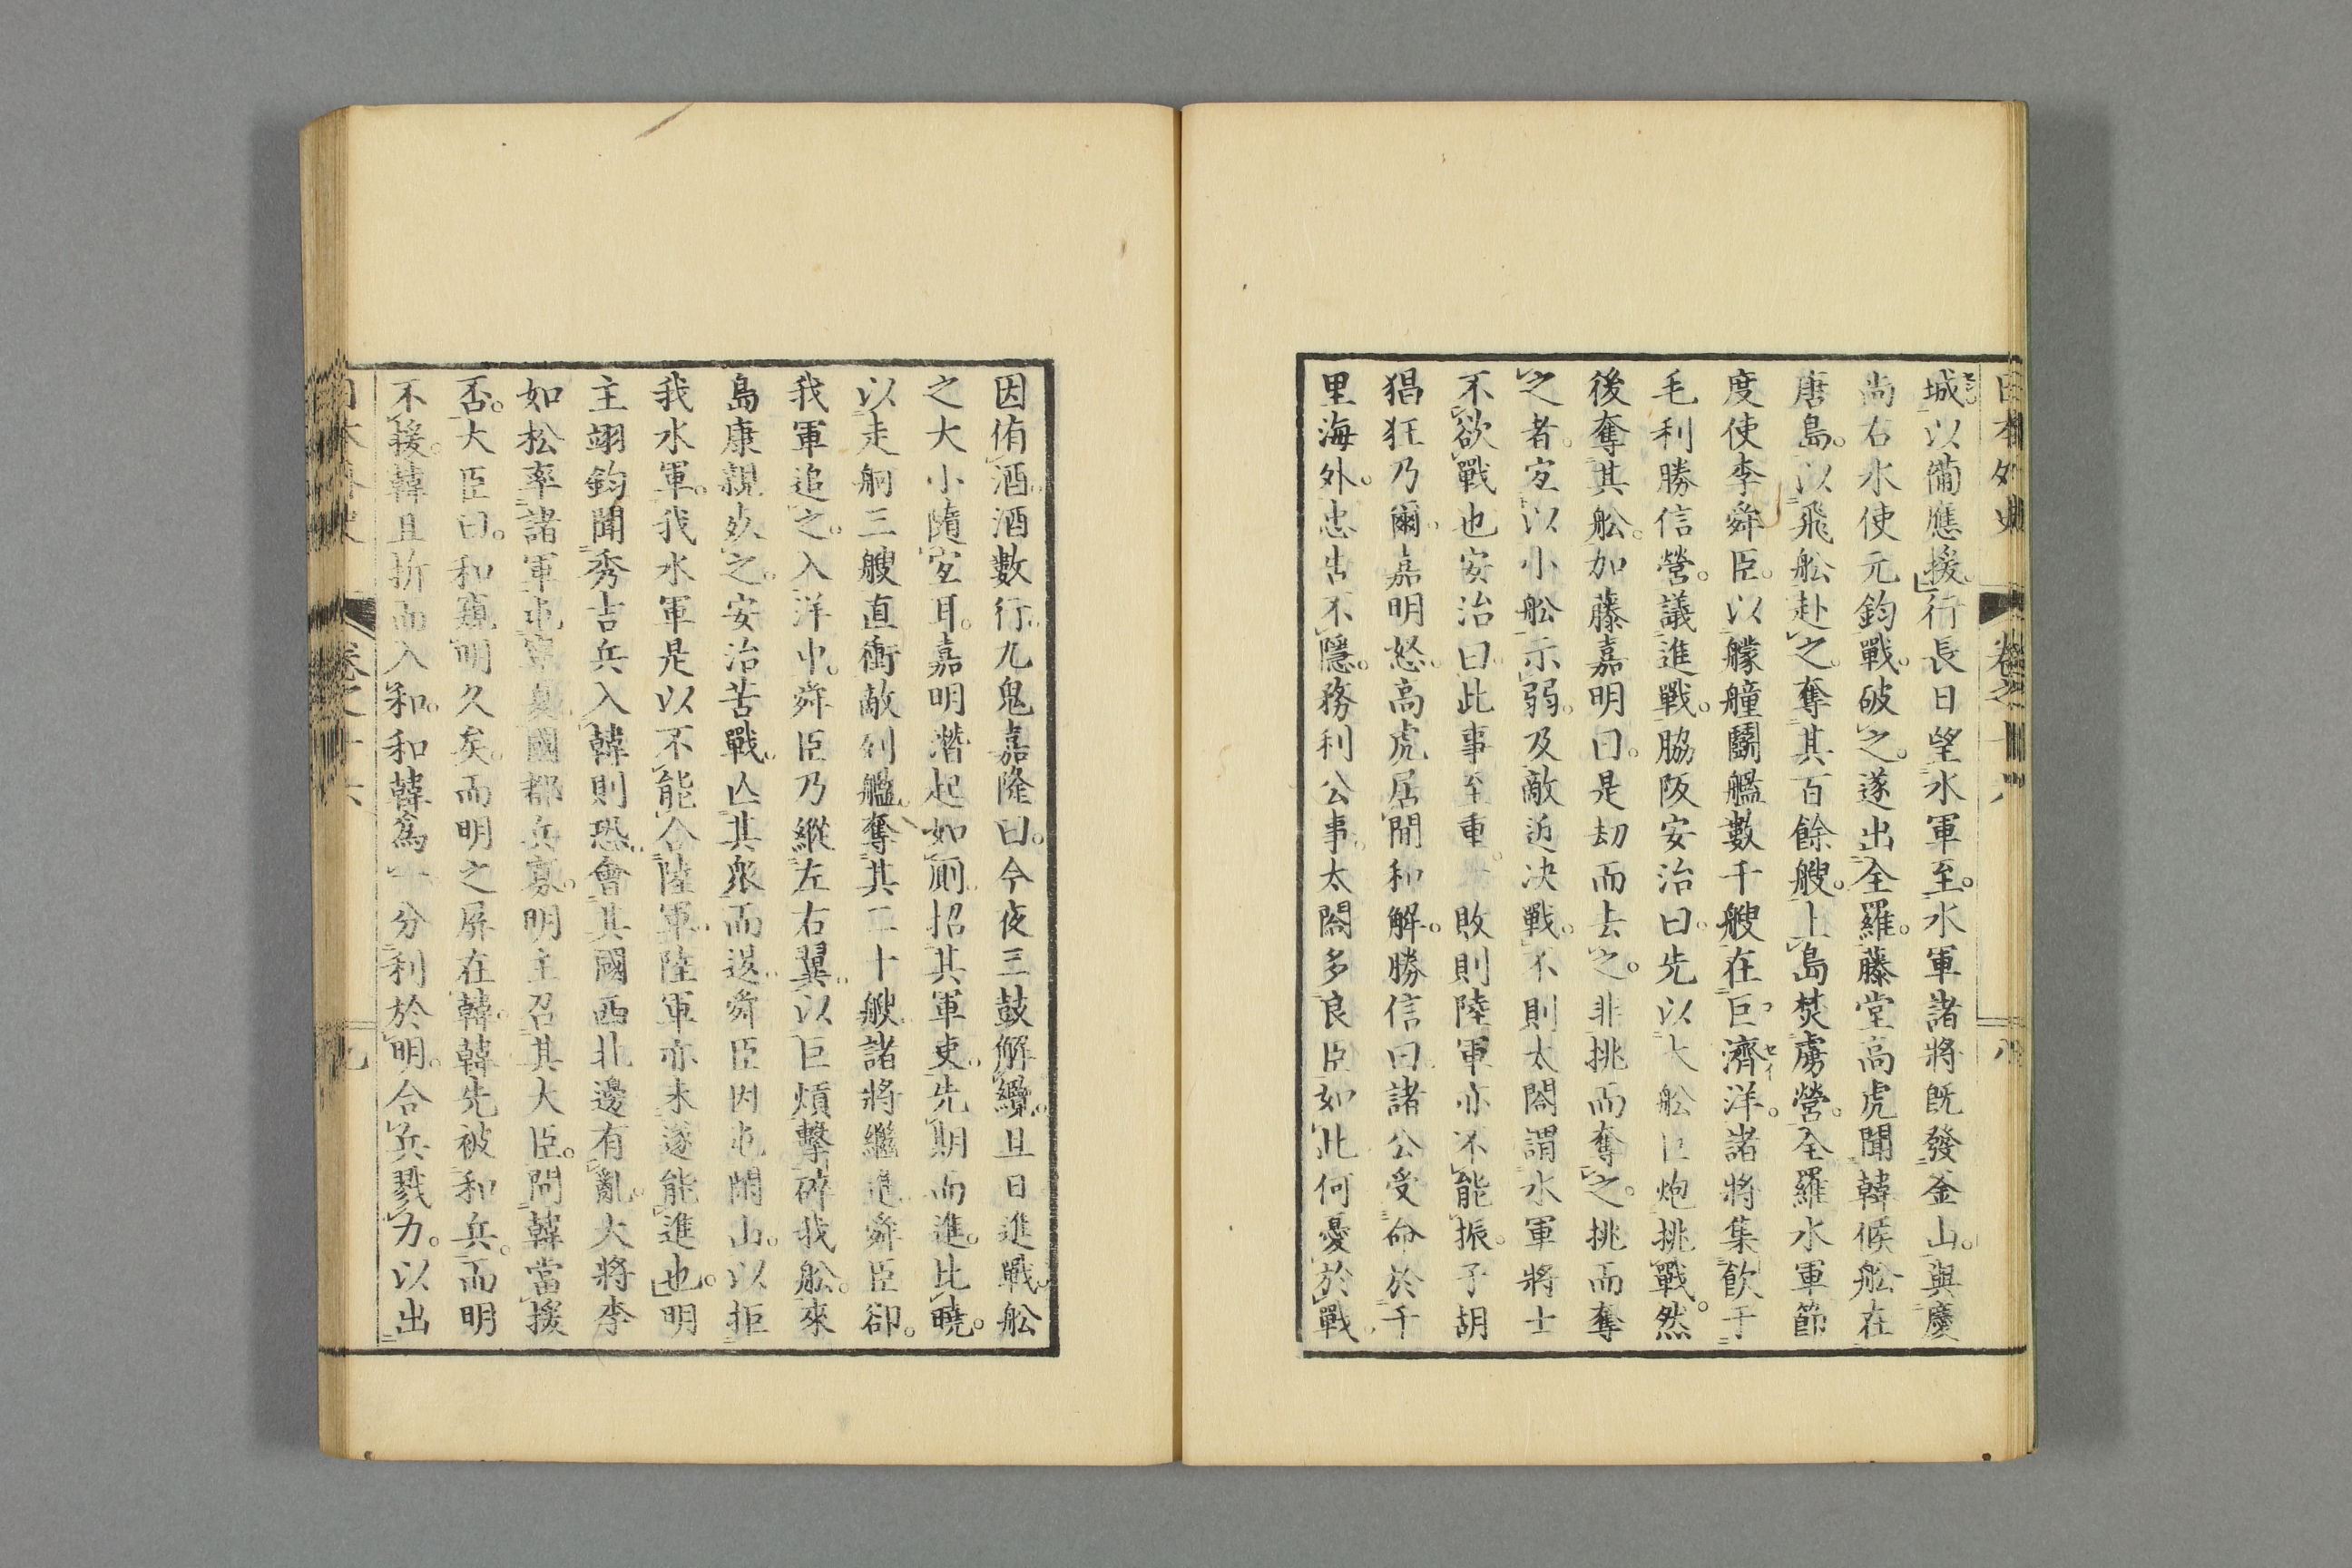 日本外史
卷之十六
八
城以備應援行長日望水軍至。水軍諸將既發釜山。與慶
尚右水使元鈞戰。破之。遂出全羅。藤堂高虎聞韓候舩在
唐島。以飛舩赴之。奪其百餘艘。上島焚虜營。全羅水軍節
度使李舜臣。以艨艟鬪艦數千艘在巨濟洋。諸將集飲于
毛利勝信營。議進戰。脇阪安治曰。先以大舩巨炮挑戰。然
後奪其舩。加藤嘉明曰。是劫而去之。非挑而奪之。挑而奪
之者。宜以小舩示弱。及敵近决戰。不則太閤謂水軍將士
不欲戰也安治曰。此事至重。敗則陸軍亦不能振。子胡
猖狂乃爾。嘉明怒。高虎居間和解。勝信曰諸公受命於千
里海外。忠告不隱。務利公事。太閤多良臣如此何憂於戰。
因侑酒。酒數行。九鬼嘉隆曰。今夜三鼓解纜。旦日進戰。舩
之大小隨宜耳。嘉明潛起如厠。招其軍吏。先期而進。比曉。
以走舸三艘直衝敵列艦。奪其二十艘。諸將繼進。舜臣卻。
我軍追之。入洋中。舜臣乃縱左右翼。以巨煩擊碎我舩。來
島康親死之。安治苦戰。亾其衆而退。舜臣因屯閑山。以拒
我水軍。我水軍是以不能合陸軍。陸軍亦未遂能進也。明
主翊鈞聞秀吉兵入韓則恐。會其國西北邊有亂。大將李
如松率諸軍屯寧夏。國都兵寡。明主召其大臣。問韓當援
否。大臣曰。和窺明久矣。而明之屏在韓。韓先被和兵。而明
不援。韓且折而入和。和韓爲一。分利於明。合兵戮力。以出
日本外史
卷之十六
九